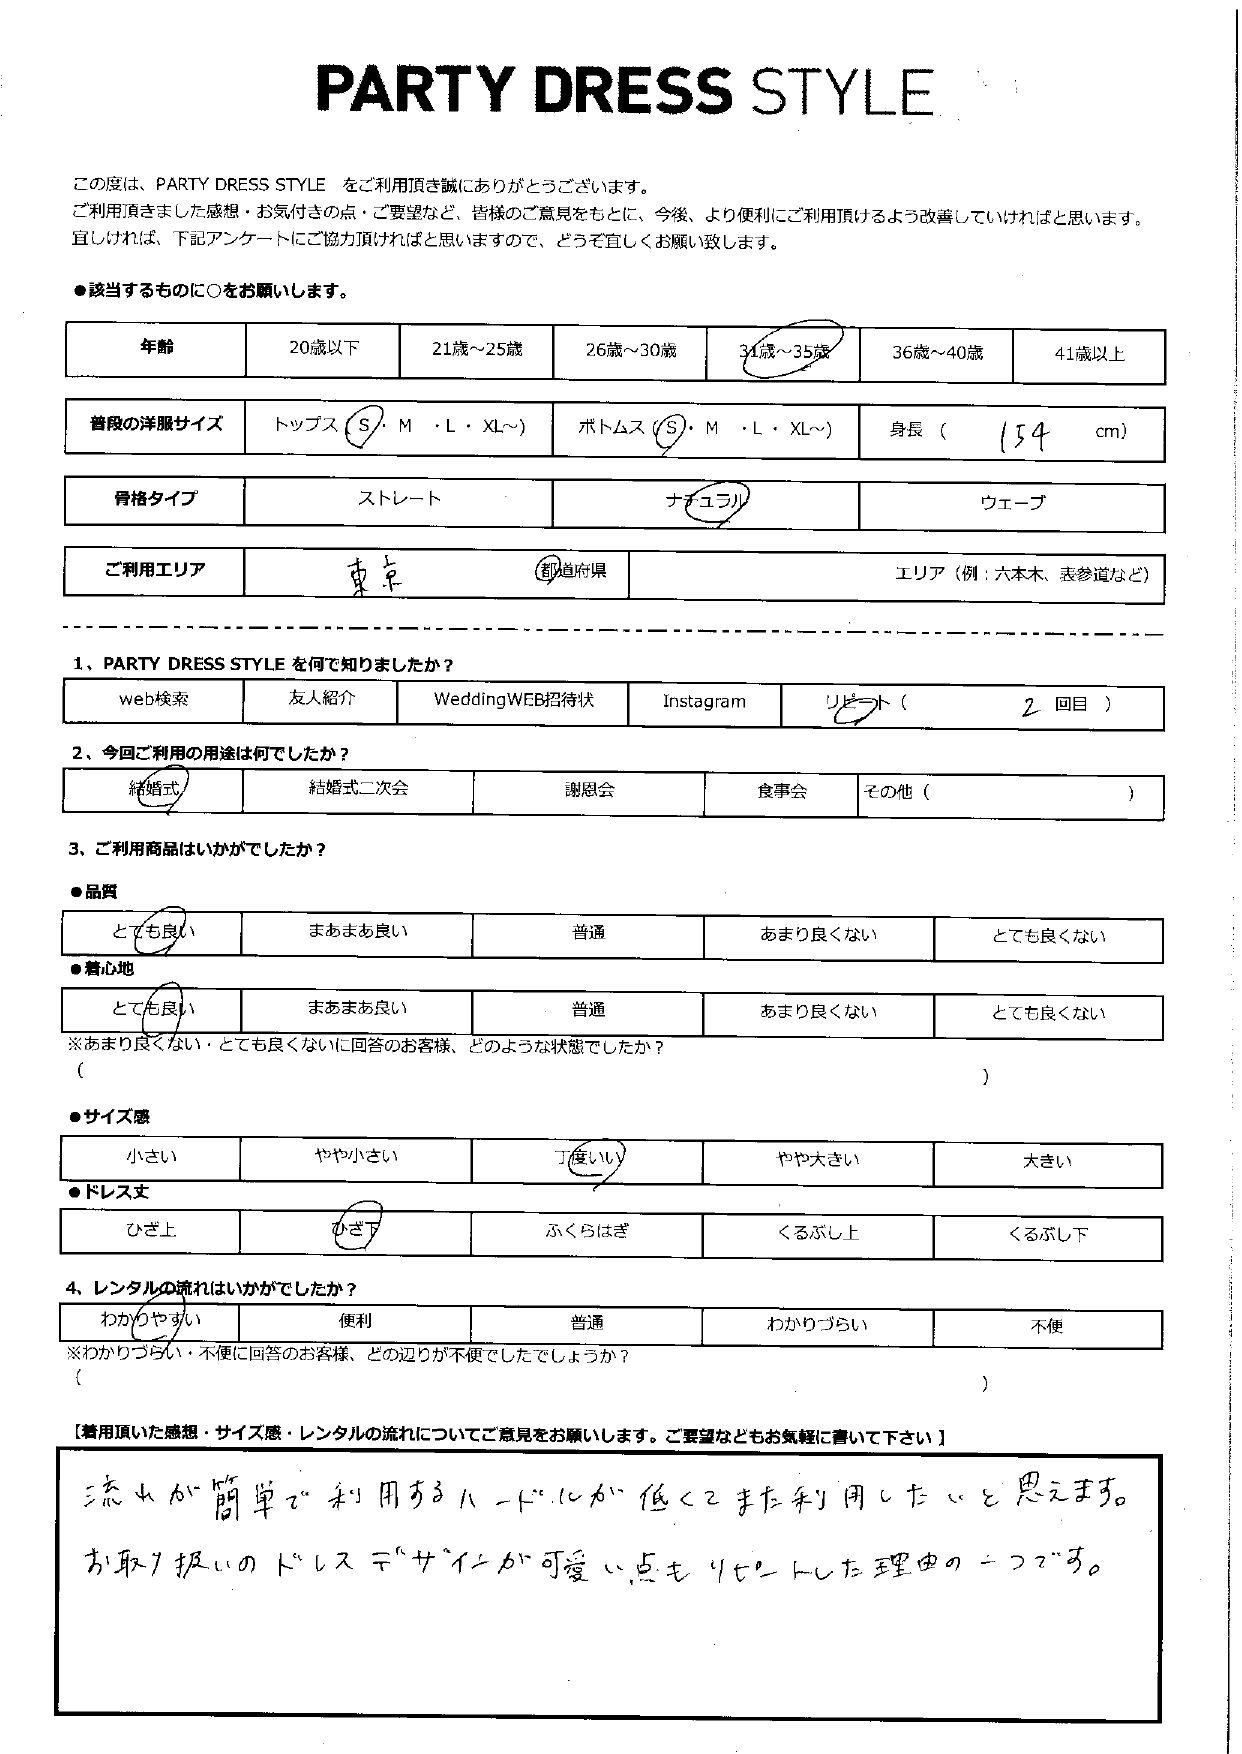 PARTY DRESS STYLE
この度は、PARTY DRESS STYLE をご利用頂き誠にありがとうございます。
ご利用頂きました感想・お気付きの点・ご要望など、皆様のご意見をもとに、今後、より便利にご利用頂けるよう改善していければと思います。
宜しければ、下記アンケートにご協力頂ければと思いますので、どうぞ宜しくお願い致します。
●該当するものに○をお願いします。
年齢 20歳以下 21歳～25歳 26歳～30歳 31歳～35歳 36歳～40歳 41歳以上
普段の洋服サイズ トップス (S・ M ・L・ XL～) ボトムス (S・ M ・L・ XL～) 身長 ( 154 cm)
骨格タイプ ストレート ナチュラル ウェーブ
ご利用エリア 東京 都道府県 エリア（例：六本木、表参道など）
1、PARTY DRESS STYLE を何で知りましたか？
web検索 友人紹介 WeddingWEB招待状 Instagram リピート ( 2 回目 )
2、今回ご利用の用途は何でしたか？
結婚式 結婚式二次会 謝恩会 食事会 その他 ( )
3、ご利用商品はいかがでしたか？
●品質
とても良い まあまあ良い 普通 あまり良くない とても良くない
●着心地
とても良い まあまあ良い 普通 あまり良くない とても良くない
※あまり良くない・とても良くないに回答のお客様、どのような状態でしたか？
( )
●サイズ感
小さい やや小さい 丁度いい やや大きい 大きい
●ドレス丈
ひざ上 ひざ下 ふくらはぎ くるぶし上 くるぶし下
4、レンタルの流れはいかがでしたか？
わかりやすい 便利 普通 わかりづらい 不便
※わかりづらい・不便に回答のお客様、どの辺りが不便でしたでしょうか？
( )
【着用頂いた感想・サイズ感・レンタルの流れについてご意見をお願いします。ご要望などもお気軽に書いて下さい】
流れが簡単で利用するハードルが低くてまた利用したいと思えます。
お取り扱いのドレスデザインが可愛い点もリピートした理由の一つです。